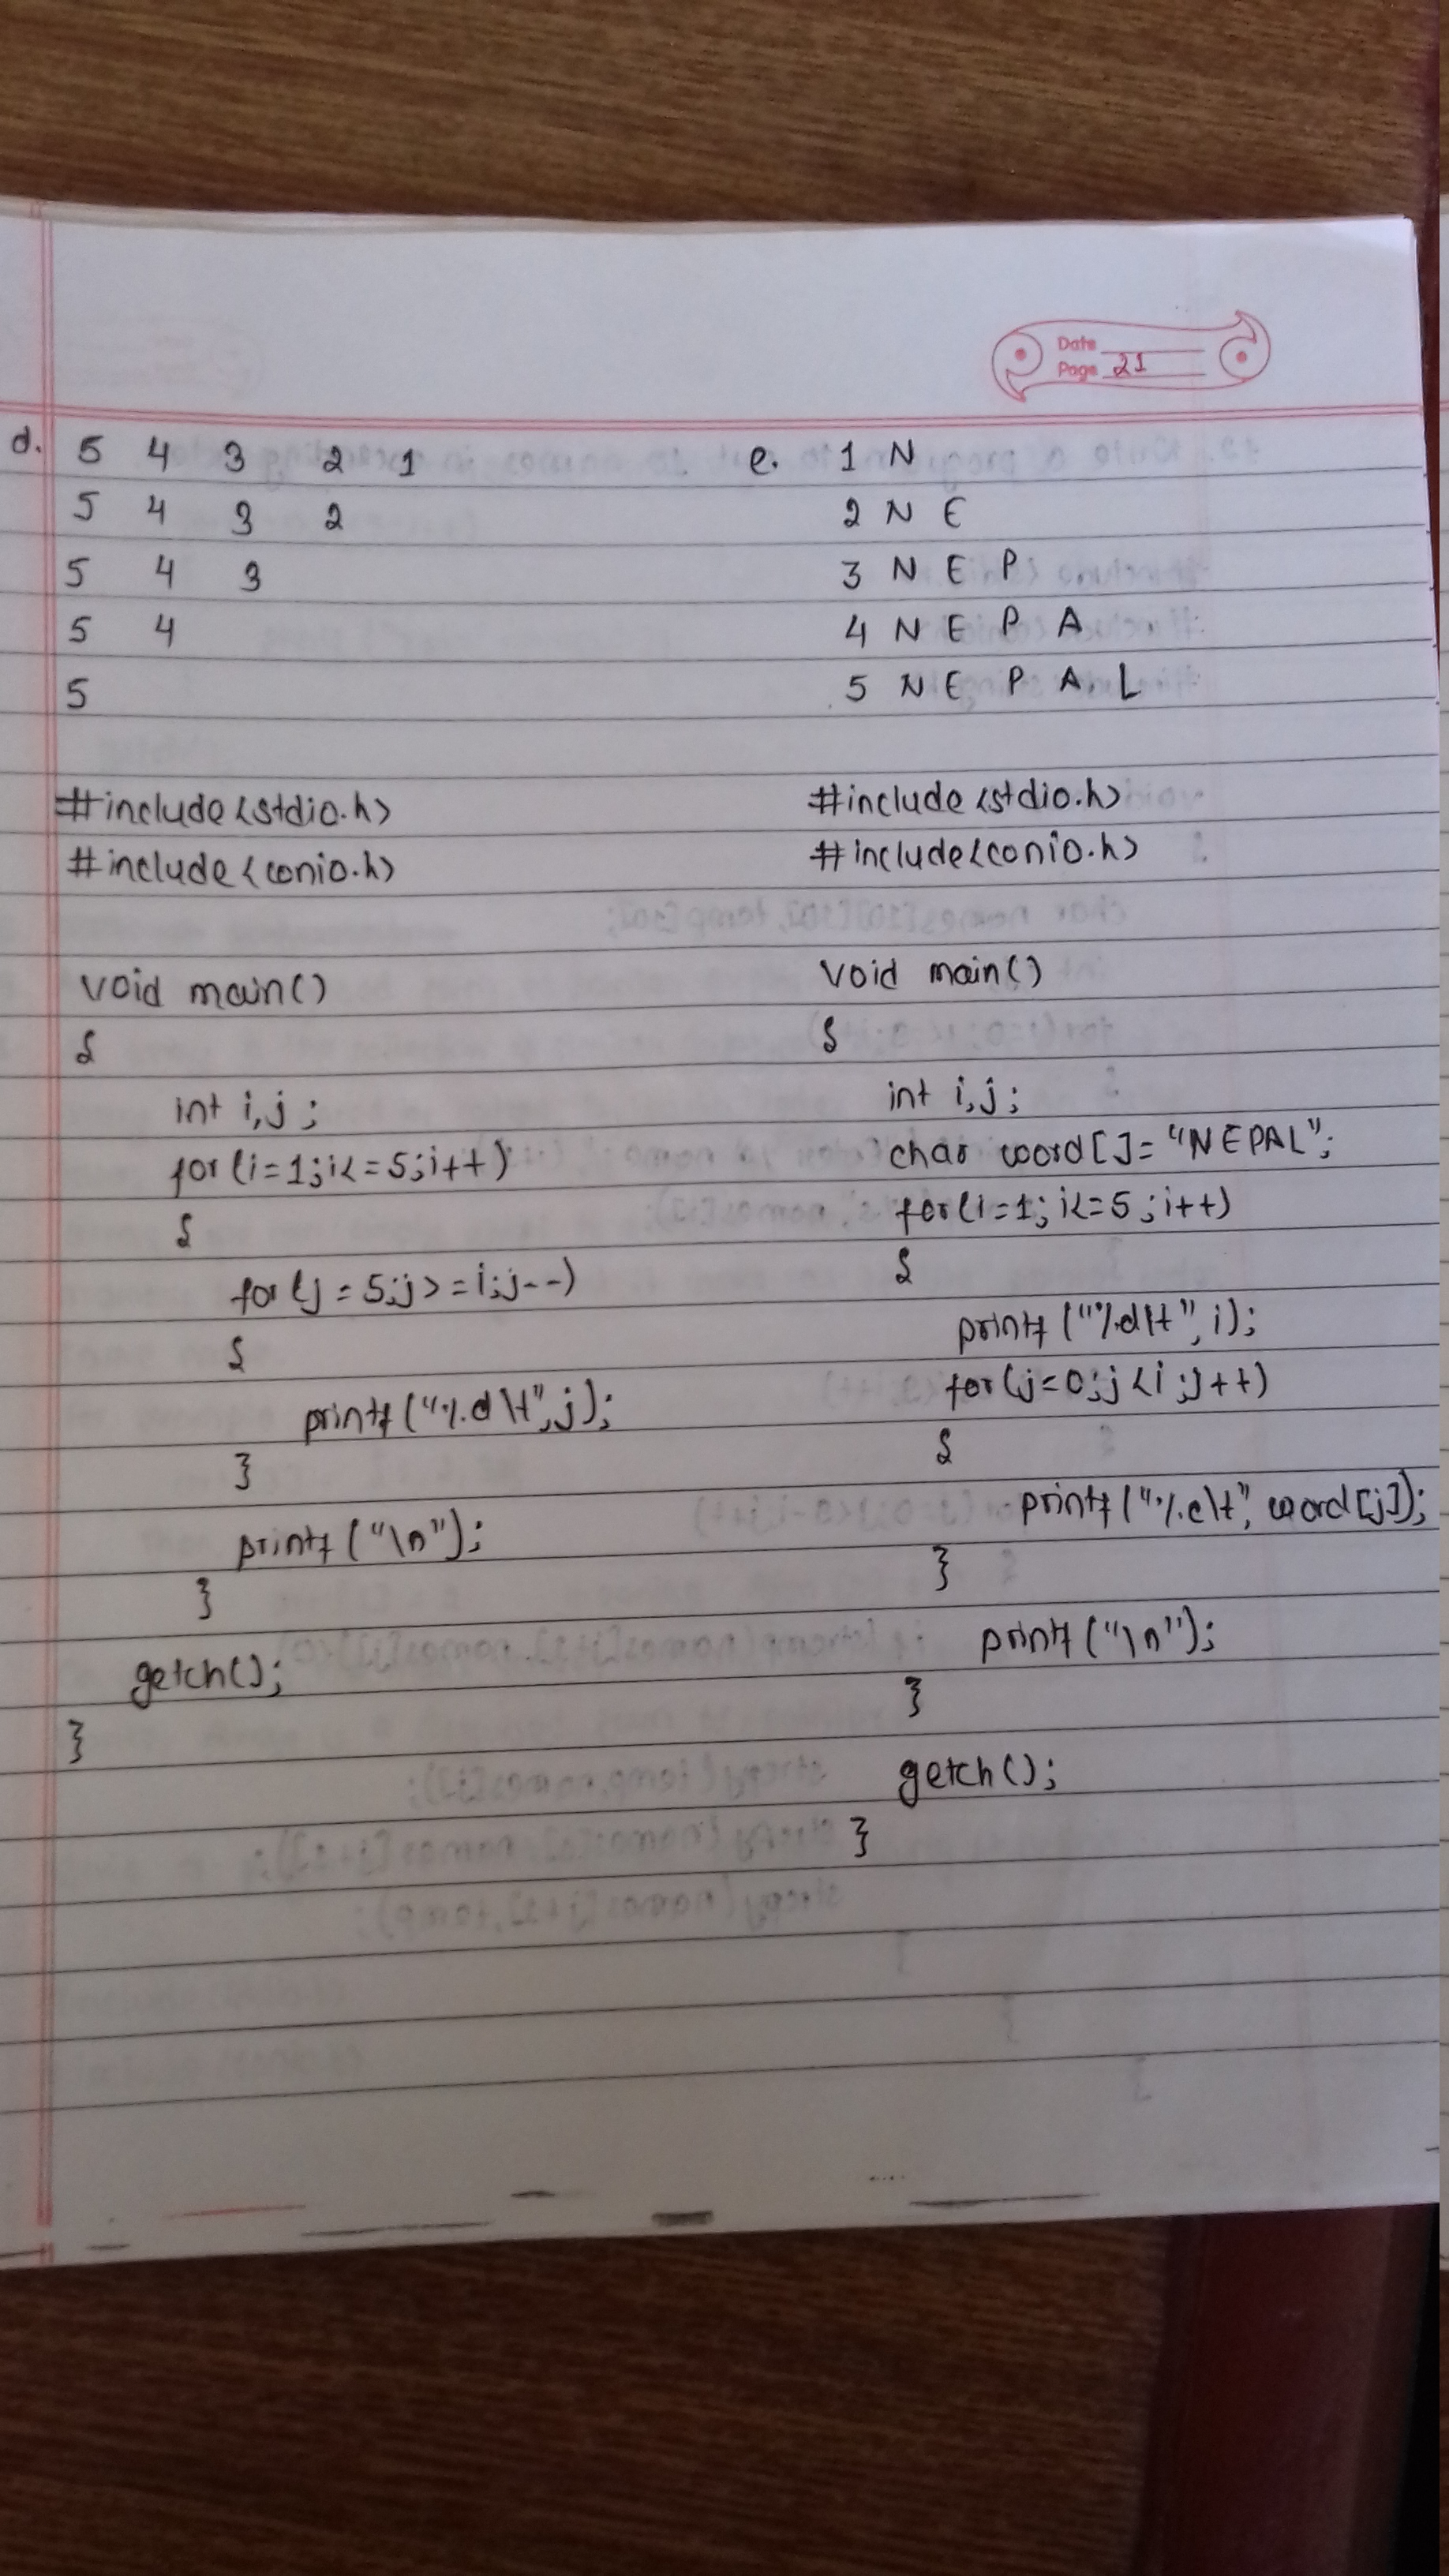 Date
Page 21
d. 5 4 3 2 1
5 4 3 2
5 4 3
5 4
5
#include<stdio.h>
#include<conio.h>
void main()
{
int i,j;
for(i=1;i<=5;i++)
{
for(j=5;j>=i;j--)
{
printf("%d\t",j);
}
printf("\n");
}
getch();
}
e. 1 N
2 N E
3 N E P
4 N E P A
5 N E P A L
#include<stdio.h>
#include<conio.h>
void main()
{
int i,j;
char word[]="NEPAL";
for(i=1;i<=5;i++)
{
printf("%d\t",i);
for(j=0;j<i;j++)
{
printf("%c\t", word[j]);
}
printf("\n");
}
getch();
}